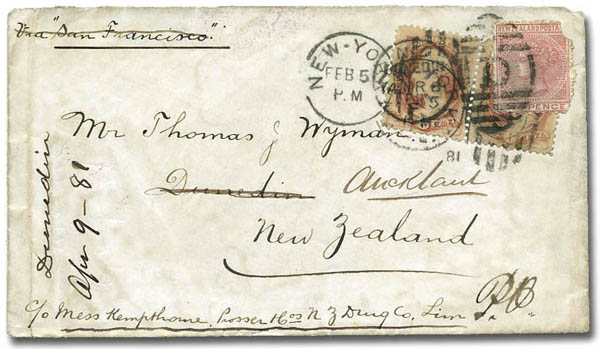 Via "San Francisco".
NEW-YO
FEB 5
P.M
NEW ZEALAND POSTA
PENCE
81
Mr Thomas J Wyman
Dunedin Auckland
New Zealand
c/o Mess Kempthorne, Prosser & Co's N Z Drug Co, Lim
P.O
Dunedin
Apr 9-81